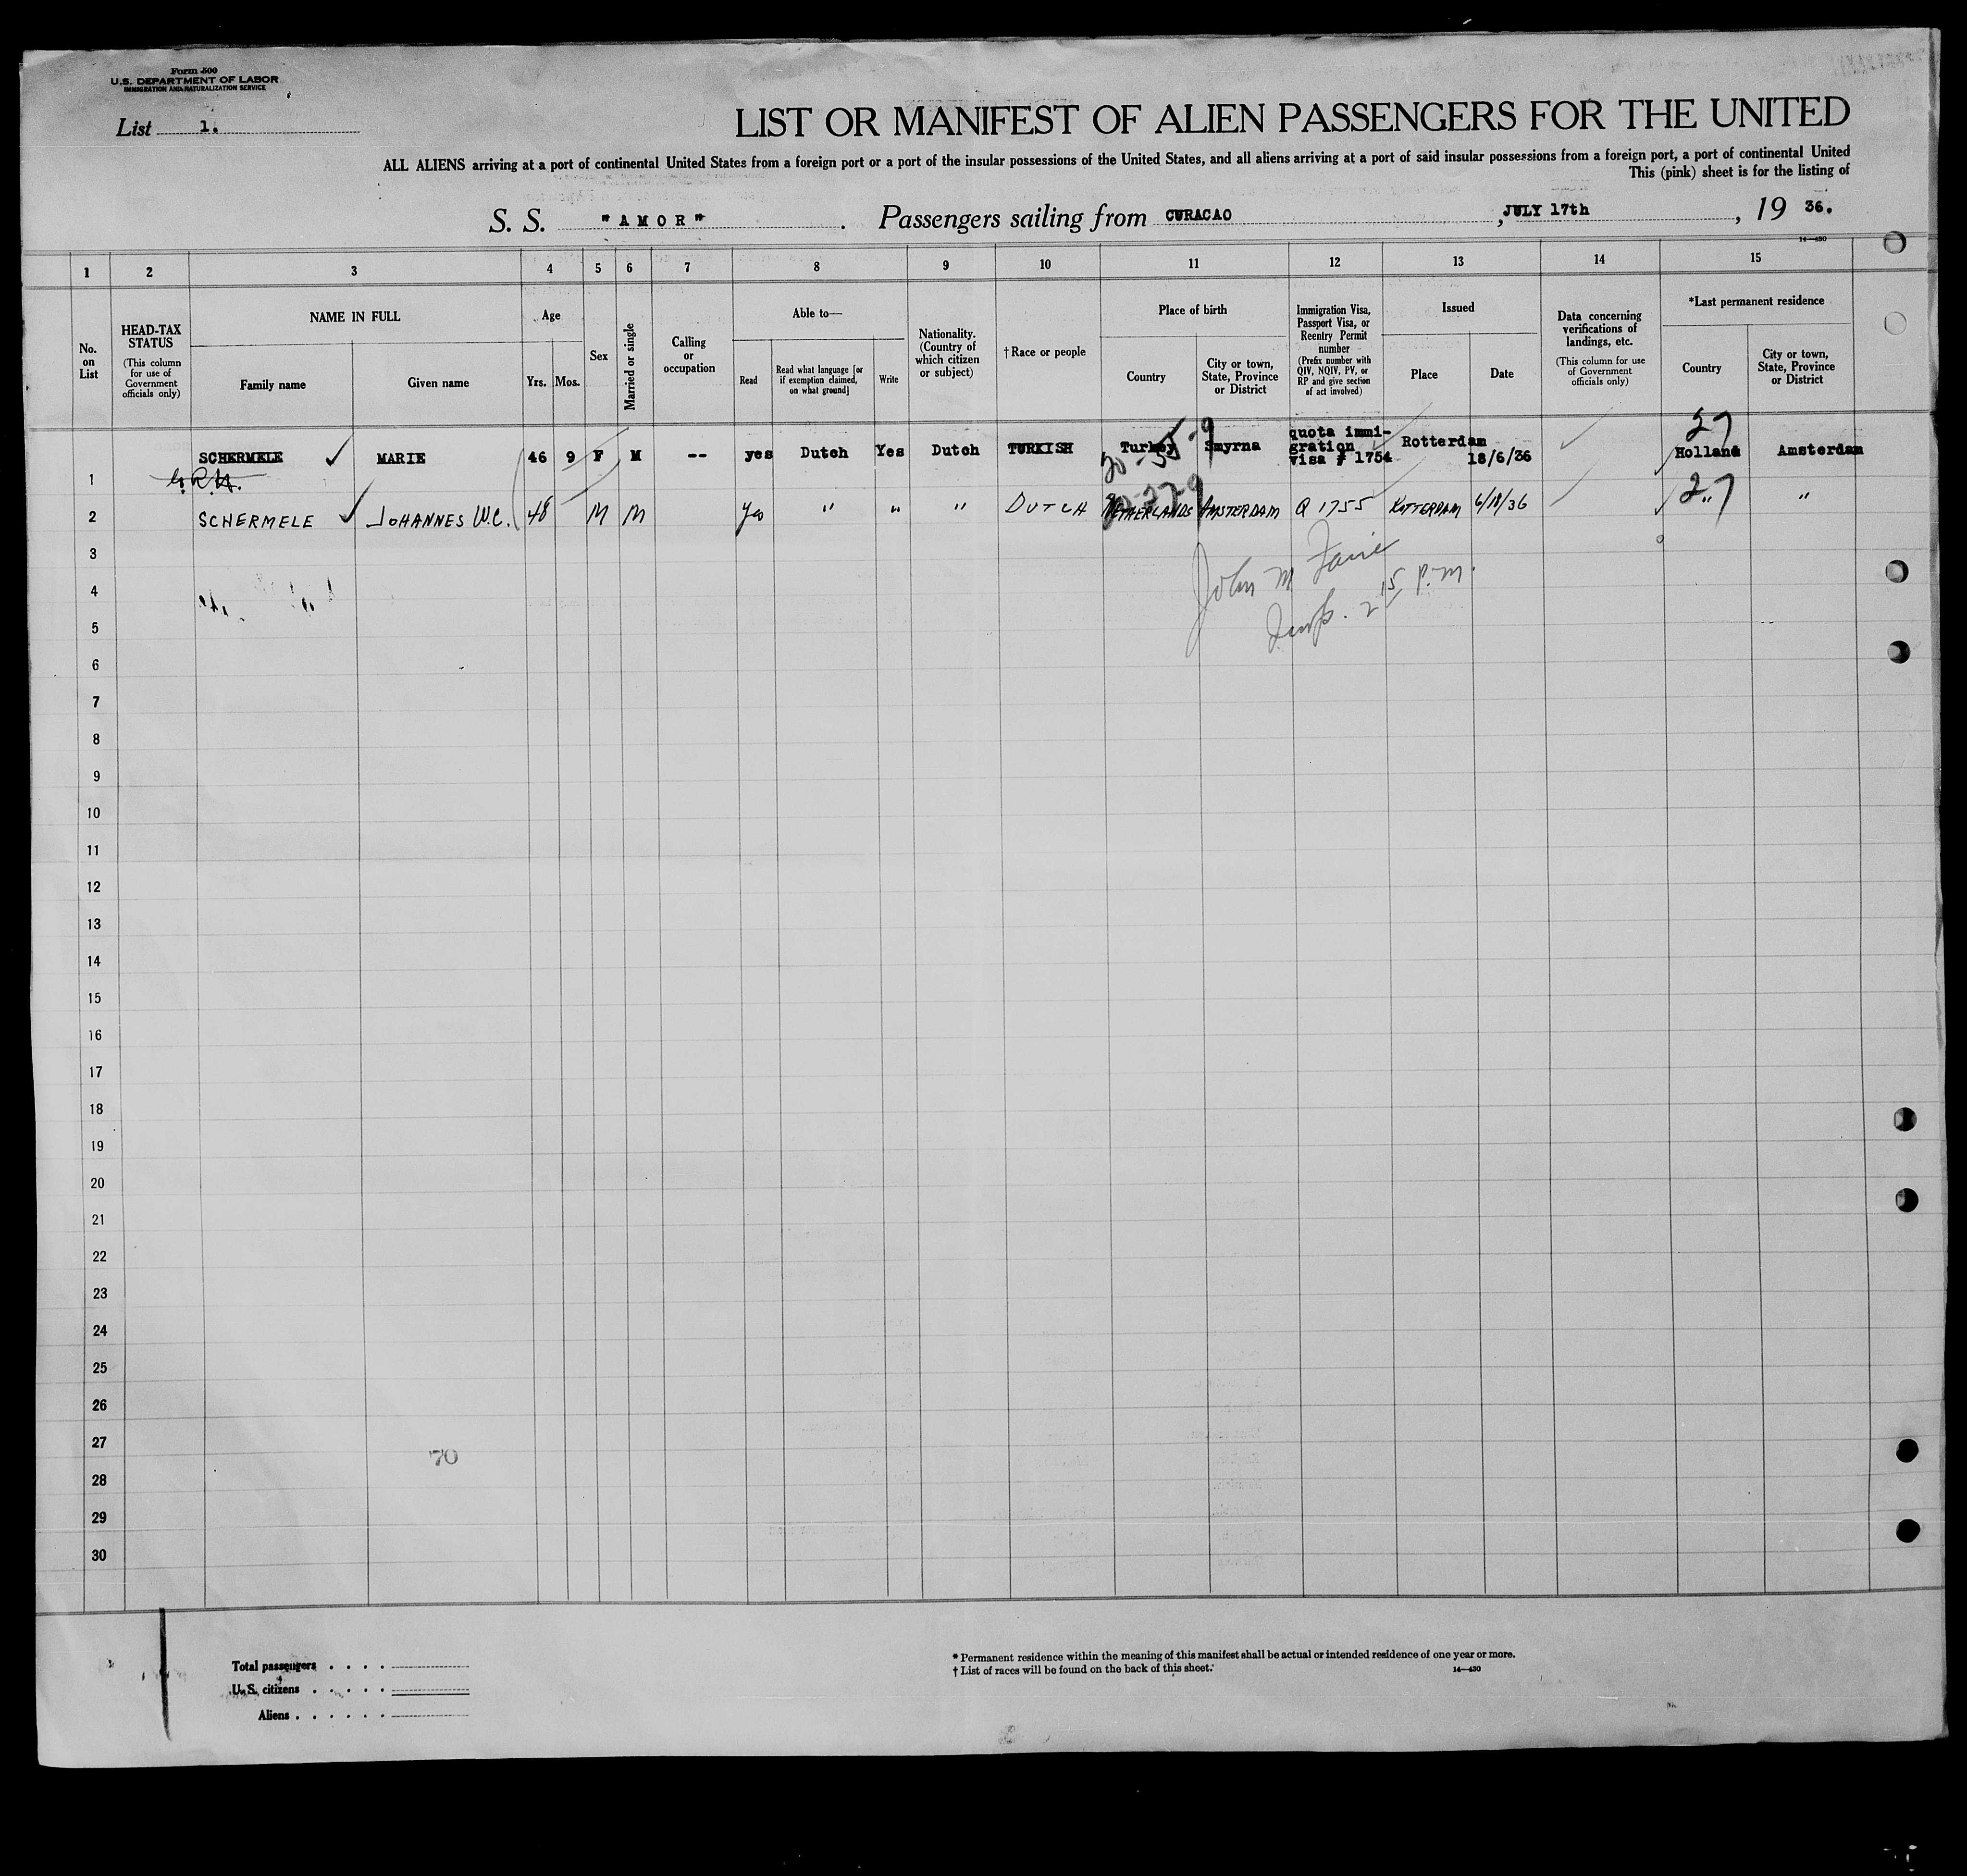 Form 500
U.S. DEPARTMENT OF LABOR
IMMIGRATION AND NATURALIZATION SERVICE
List 1.
LIST OR MANIFEST OF ALIEN PASSENGERS FOR THE UNITED
ALL ALIENS arriving at a port of continental United States from a foreign port or a port of the insular possessions of the United States, and all aliens arriving at a port of said insular possessions from a foreign port, a port of continental United
This (pink) sheet is for the listing of
S. S. "AMOR". Passengers sailing from CURACAO, JULY 17th, 19 36.
14—430
1 2 3 4 5 6 7 8 9 10 11 12 13 14 15
No. on List
HEAD-TAX STATUS
(This column for use of Government officials only)
NAME IN FULL
Family name Given name
Age
Yrs. Mos.
Sex
Married or single
Calling or occupation
Able to—
Read
Read what language [or if exemption claimed, on what ground]
Write
Nationality. (Country of which citizen or subject)
† Race or people
Place of birth
Country
City or town, State, Province or District
Immigration Visa, Passport Visa, or Reentry Permit number
(Prefix number with QIV, NQIV, PV, or RP and give section of act involved)
Issued
Place Date
Data concerning verifications of landings, etc.
(This column for use of Government officials only)
*Last permanent residence
Country
City or town, State, Province or District
27
1 SCHERMELE ✓ MARIE 46 9 F M -- yes Dutch Yes Dutch TURKISH Turkey Smyrna quota immi-gration visa # 1754 Rotterdam 18/6/36 Holland Amsterdam
27
2 SCHERMELE ✓ JOHANNES W.C. 48 M M Yes " " " DUTCH NETHERLANDS AMSTERDAM Q 1755 ROTTERDAM 6/18/36 " "
3
John M
4
Insp. 2 15 p.m.
5
6
7
8
9
10
11
12
13
14
15
16
17
18
19
20
21
22
23
24
25
26
27
70
28
29
30
Total passengers
U.S. citizens
Aliens
* Permanent residence within the meaning of this manifest shall be actual or intended residence of one year or more.
† List of races will be found on the back of this sheet.
14—430